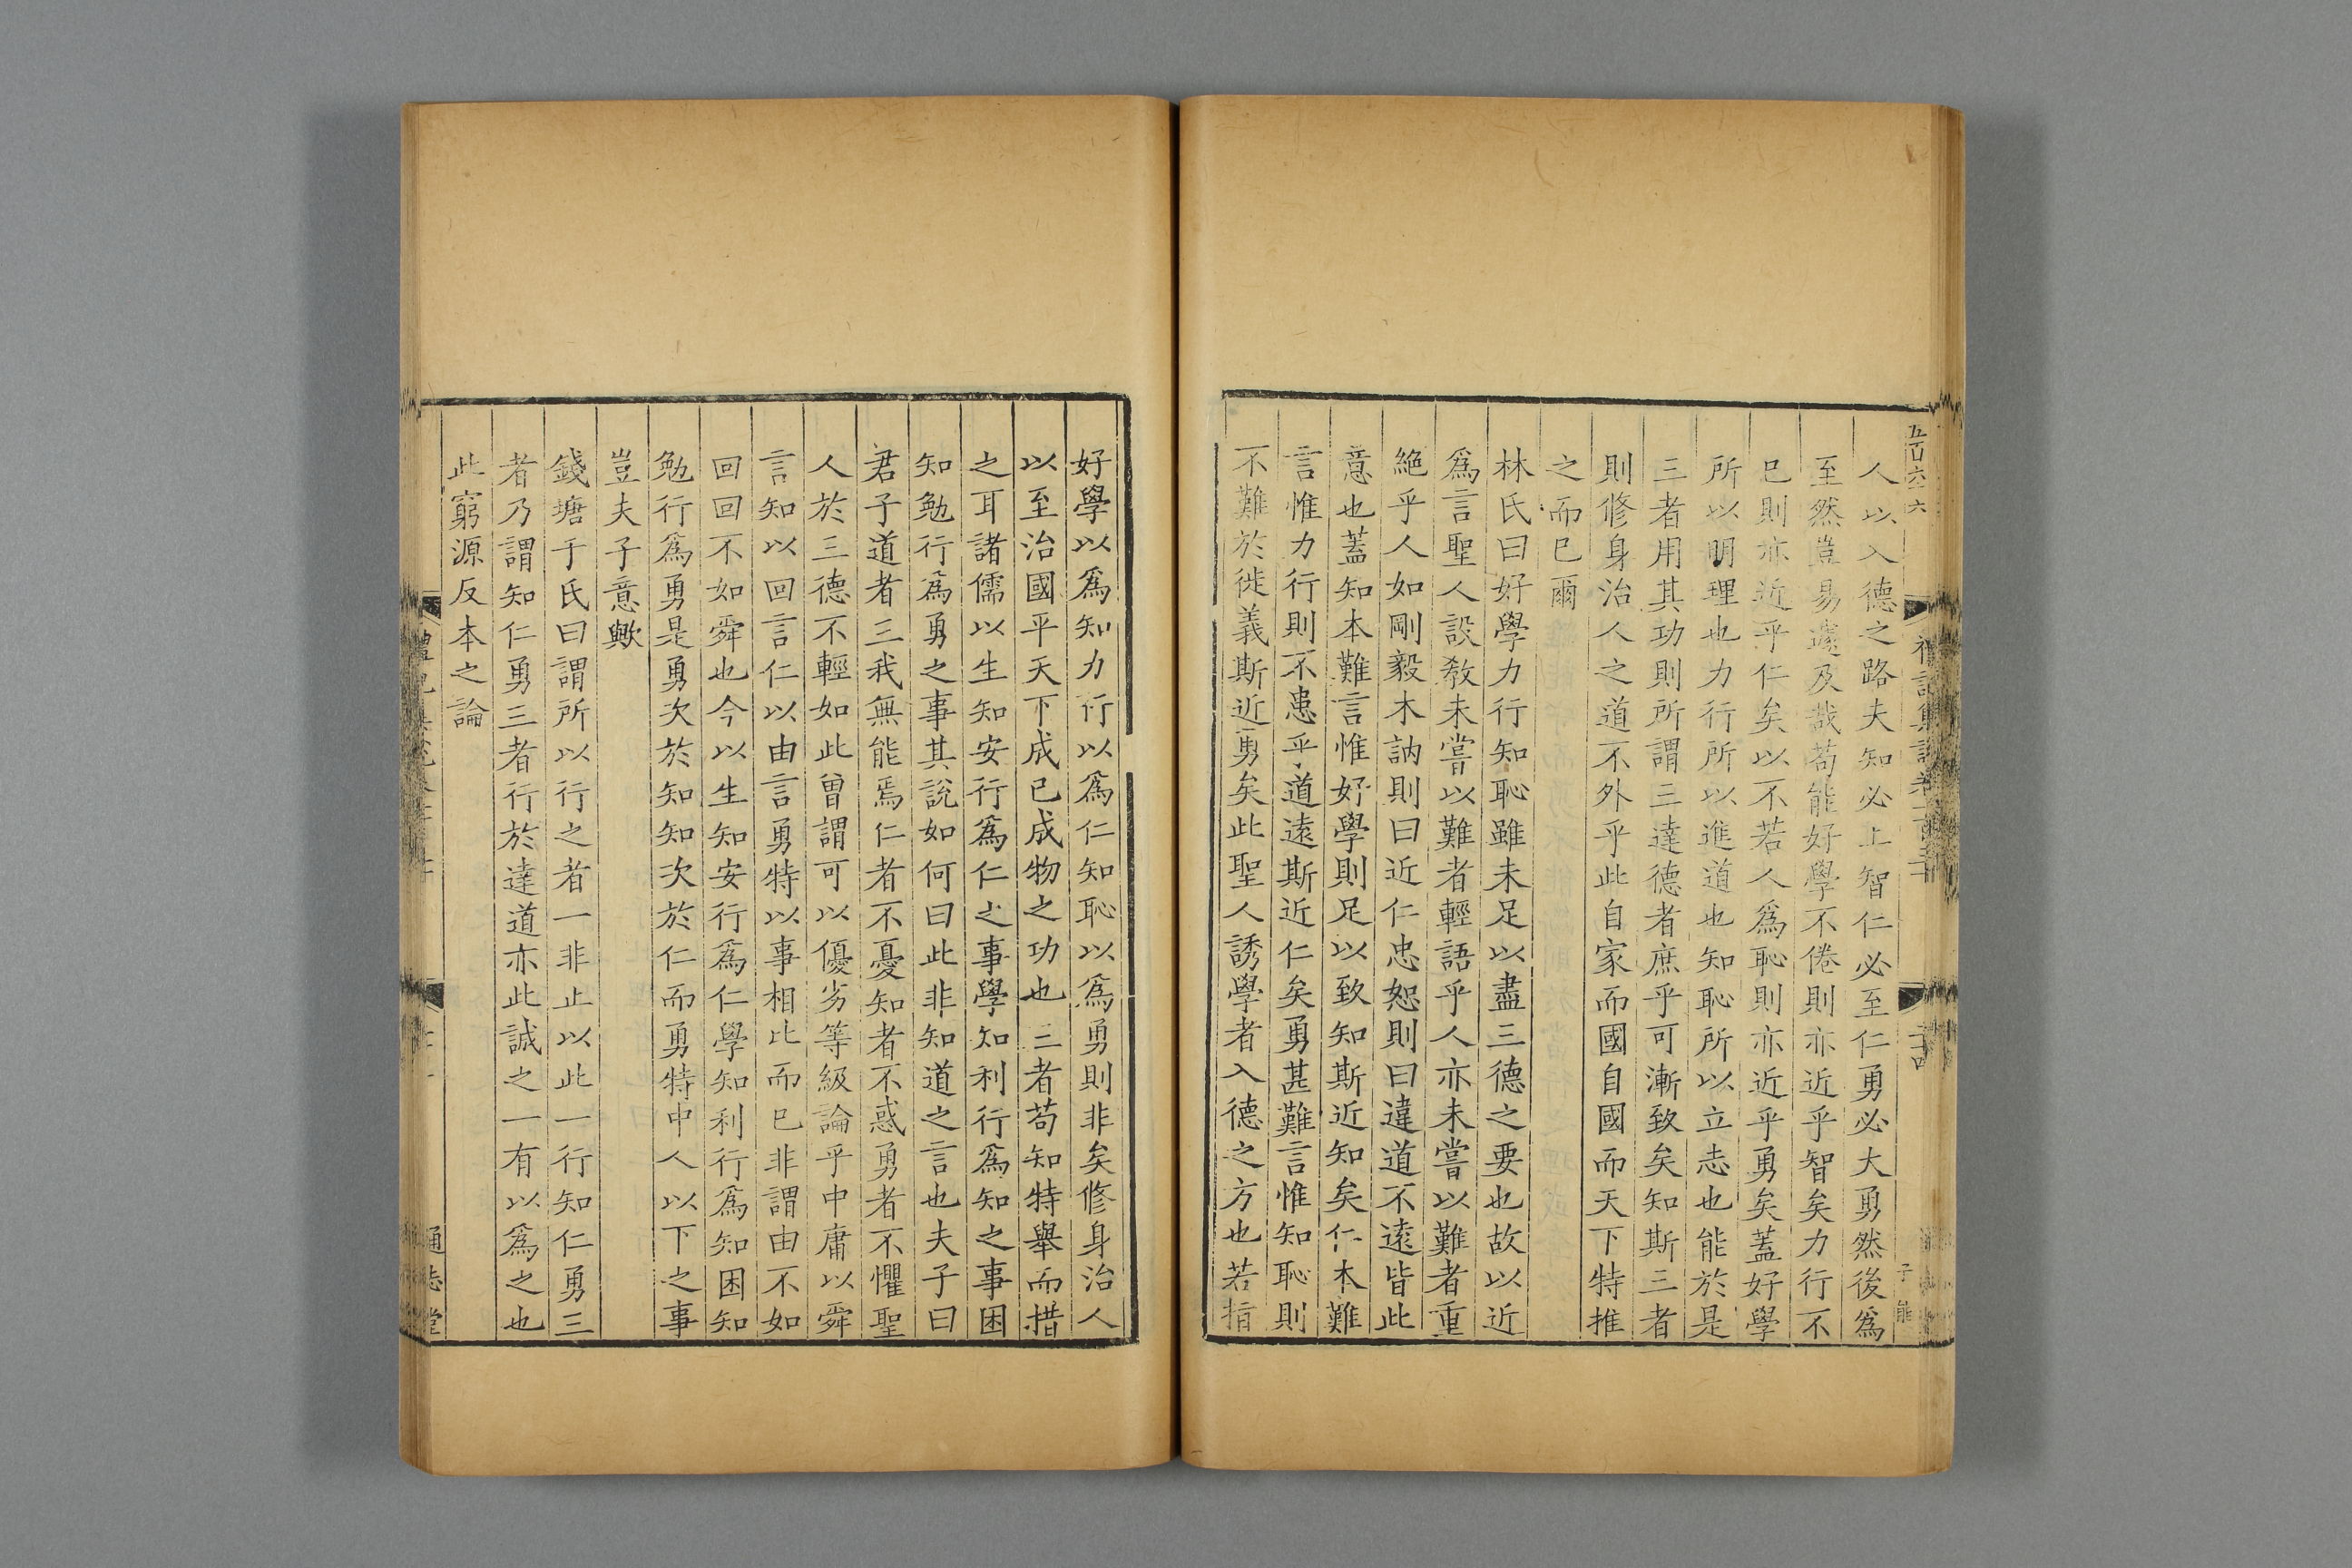 五百六十六
人以入德之路夫知必上智仁必至仁勇必大勇然後爲
至然豈易遽及哉苟能好學不倦則亦近乎智矣力行不
已則亦近乎仁矣以不若人爲恥則亦近乎勇矣蓋好學
所以明理也力行所以進道也知恥所以立志也能於是
三者用其功則所謂三達德者庶乎可漸致矣知斯三者
則修身治人之道不外乎此自家而國自國而天下特推
之而已爾
林氏曰好學力行知恥雖未足以盡三德之要也故以近
爲言聖人設教未嘗以難者輕語乎人亦未嘗以難者重
絶乎人如剛毅木訥則曰近仁忠恕則曰違道不遠皆此
意也蓋知本難言惟好學則足以致知斯近知矣仁本難
言惟力行則不患乎道遠斯近仁矣勇甚難言惟知恥則
不難於徙義斯近勇矣此聖人誘學者入德之方也若指
好學以爲知力行以爲仁知恥以爲勇則非矣修身治人
以至治國平天下成已成物之功也三者苟知特舉而措
之耳諸儒以生知安行爲仁之事學知利行爲知之事困
知勉行爲勇之事其說如何曰此非知道之言也夫子曰
君子道者三我無能焉仁者不憂知者不惑勇者不懼聖
人於三德不輕如此曾謂可以優劣等級論乎中庸以舜
言知以回言仁以由言勇特以事相比而已非謂由不如
回回不如舜也今以生知安行爲仁學知利行爲知困知
勉行爲勇是勇次於知知次於仁而勇特中人以下之事
豈夫子意歟
錢塘于氏曰謂所以行之者一非止以此一行知仁勇三
者乃謂知仁勇三者行於達道亦此誠之一有以爲之也
此窮源反本之論
通志堂